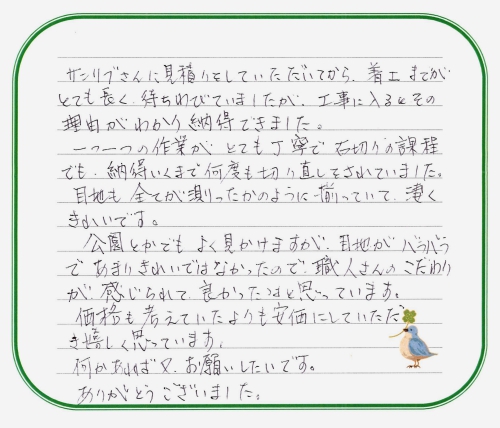 サンリブさんに見積りをしていただいてから、着工までが
とても長く、待ちわびていましたが、工事に入るとその
理由がわかり納得できました。
一つ一つの作業が とても丁寧で 石切りの課程
でも、納得いくまで何度も切り直しをされていました。
目地も 全てが測ったかのように揃っていて、凄く
きれいです。
公園とかでも よく見かけますが、目地が バラバラ
で あまりきれいではなかったので、職人さんの こだわり
が、感じられて、良かったなと思っています。
価格も考えていたよりも安価にしていただ
き嬉しく思っています。
何かあれば又、お願いしたいです。
ありがとうございました。